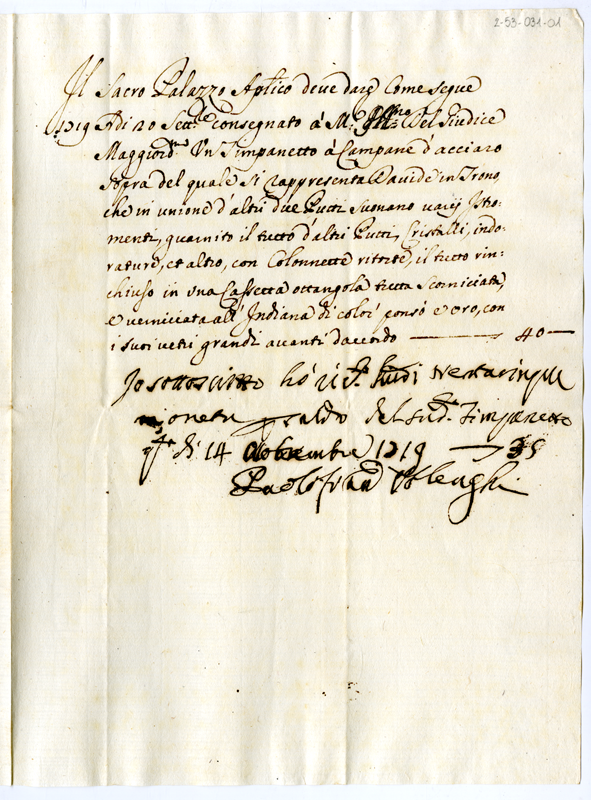 2-53-031-01
Il Sacro Palazzo Aplico deve dare Come segue
1719 Adi 20 Sett.e consegnato à M.r Ill.mo Del Giudice
Maggiord.mo Un Timpanetto à Campane d'acciaro
sopra del quale si rappresenta Davide in Trono,
che in unione d'altri due Putti suonano varij Istro-
menti, guarnito il tutto d'altri Putti, Cristalli, indo-
rature, et altro, con Colonnette ritorte, il tutto rin-
chiuso in una Cassetta ottangola tutta Scorniciata,
e verniciata all'Indiana di color ponsò e oro, con
i suoi vetri grandi avanti d'accordo — 40 —
Io sottoscritto hò ric.to scudi trentacinque
moneta p saldo del sud.to Timpanetto
q.to dì 14 9bre 1719 — 35
Paolo